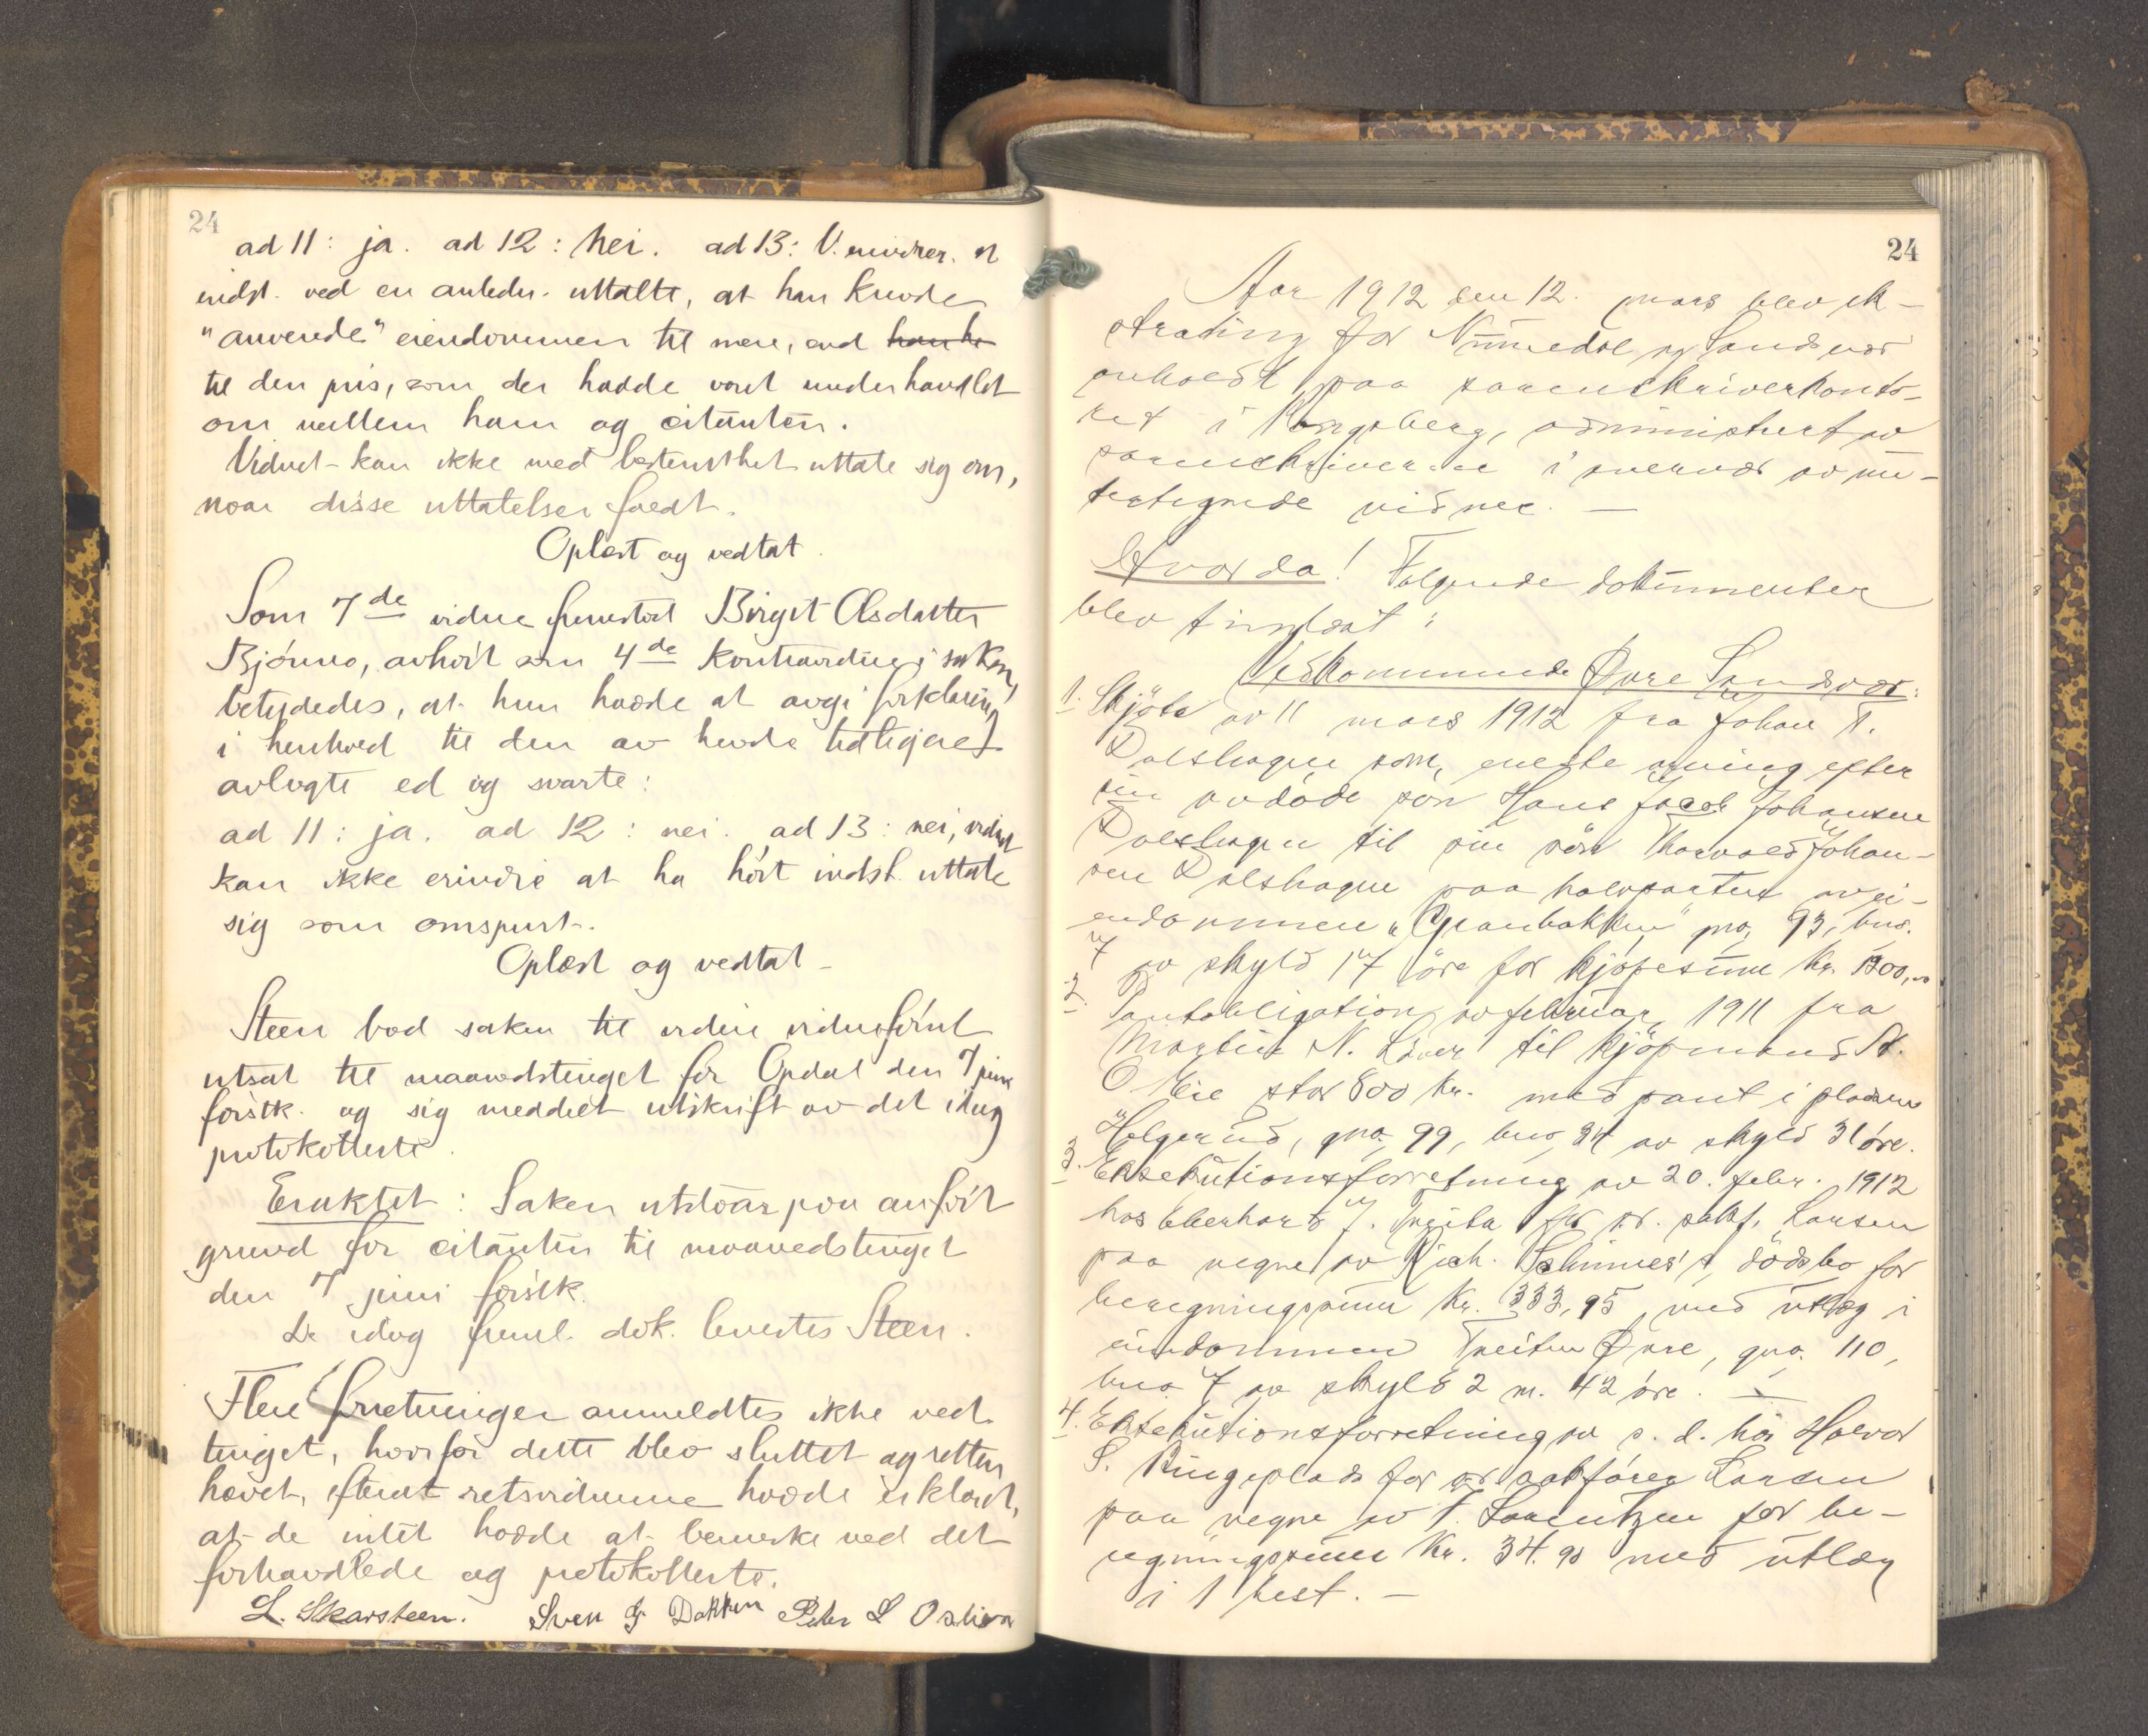 24
ad 11: ja. ad 12: nei. ad 13: V. erindrer, at
indst. ved en anledn. uttalte, at han kunde
"anvende" eiendommen til mere, end han ha
til den pris, som der hadde vært underhandlet
om mellem ham og citanten.
Vidnet kan ikke med bestemthet uttale sig om,
naar disse uttalelser faldt.
Oplæst og vedtat.
Som 7de vidne fremstod Birgit Olsdatter
Bjømo, avhørt som 4de kontravidne i saken,
betydedes, at hun hadde at avgi forklaring
i henhold til den av hende tidligere
avlagte ed og svarte:
ad 11: ja. ad 12: nei. ad 13: nei, vidnet
kan ikke erindre at ha hørt indst. uttale
sig som omspurt.
Oplæst og vedtat
Steen bad saken til videre vidneførsel
utsat til maanedstinget for Opdal den 7 juni
førstk. og sig meddelt utskrift av det idag
protokollerte.
Eraktet: Saken utstaar paa anført
grund for citanten til maanedstinget
den 7 juni førstk.
De idag freml. dok. levertes Steen.
Flere forretninger anmeldtes ikke ved
tinget, hvorfor dette blev sluttet og retten
hævet, efterat retsvidnerne hadde erklært,
at de intet hadde at bemerke ved det
forhandlede og protokollerte.
L. Skarsteen. Sven G. Dokken Peder L
24
Aar 1912 den 12. mars blev ek-
strating for Nummedal og Sandsvær
avholdt paa sorenskriverkonto-
ret i Kongsberg, administrert av
sorenskriveren i nærvær av un-
dertegnede vidner. —
Hvorda! Følgende dokumenter
blev tinglæst:
Vedkommende Øvre Sandsvær:
1. Skjøte av 11 mars 1912 fra Johan T.
Dalshagen som eneste arving efter
sin avdøde søn Hans Jacob Johansen
Dalshagen til sin søn Thorvald Johan-
sen Dalshagen paa halvparten av ei-
endommen "Granbakken" gno. 93, bno.
7 av skyld 17 øre for kjøpesum kr.
2. Pantobligation av februar 1911 fra
Martin N. til kjøpmand St.
O. Lie stor 800 kr. med pant i pladsen
Helgerud, gno. 99, bno 34 av skyld 31 øre.
3. Eksekutionsforretning av 20. febr. 1912
hos Eberhard J. for or. sakf. Larsen
paa vegne av Rich. dødsbo for
beregningssum kr. 333,95 med utlæg i
eiendommen Øvre, gno. 110,
bno 7 av skyld 2 m. 42 øre. —
4. Eksekutionsforretning av s. d. hos Halvor
S. Ringsplads for or sakfører Larsen
paa vegne av T. Laurentzen for be-
regningssum kr. 34.90 med utlæg
i 1 hest. —